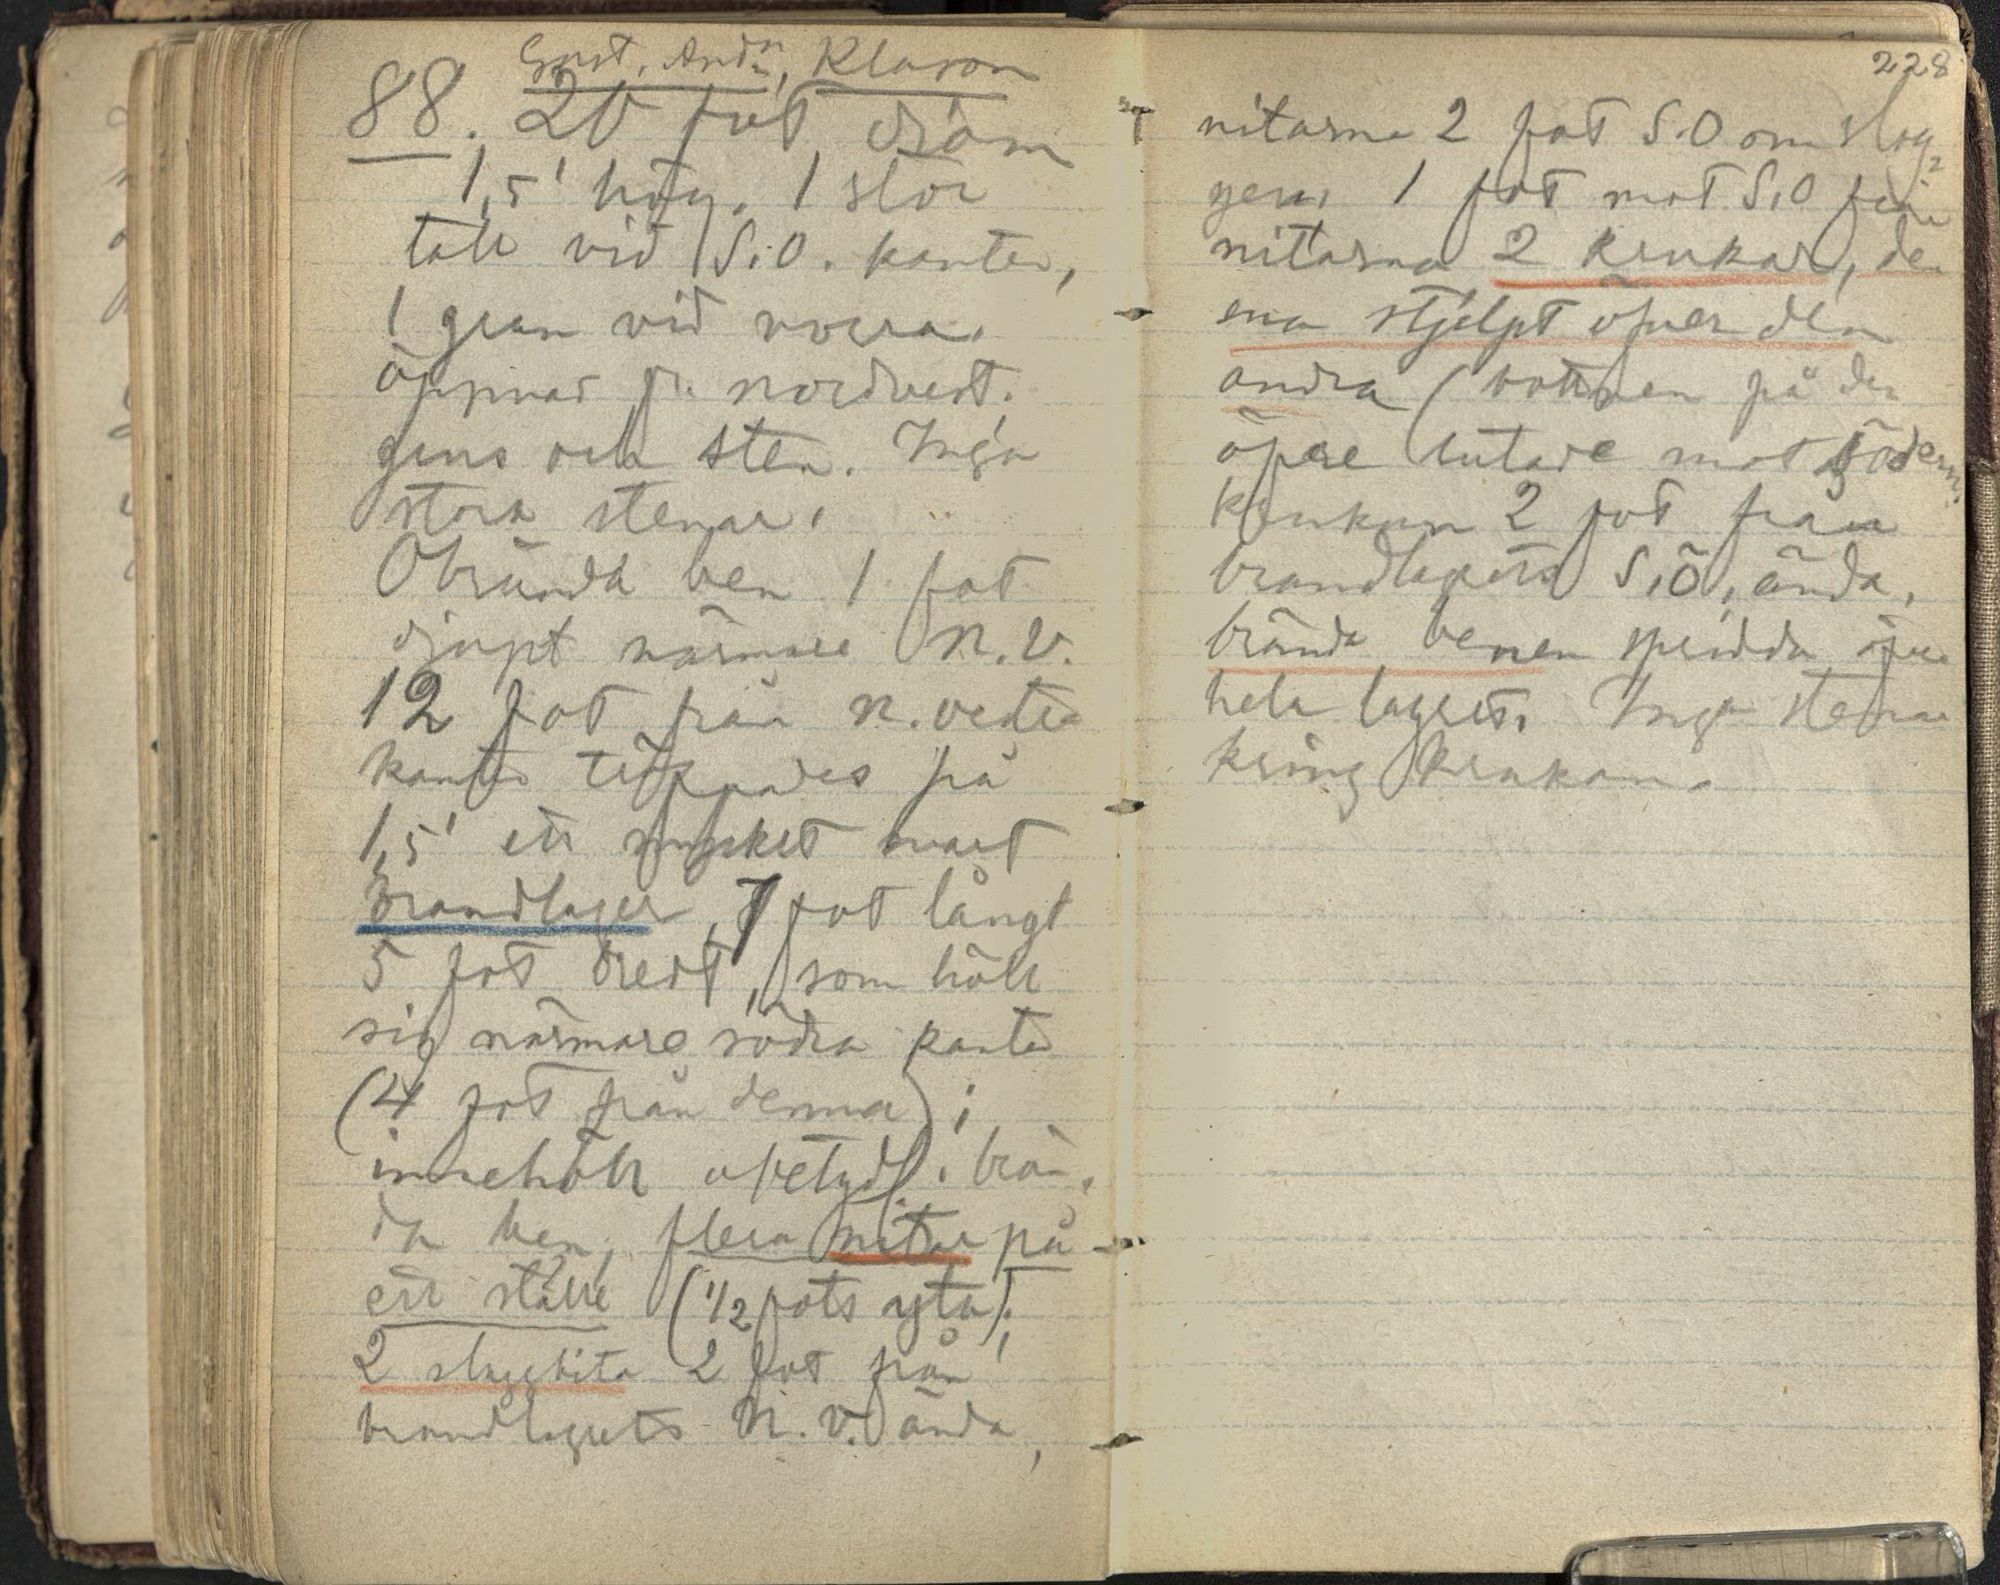 Gust. Andn, Klason
88. 20 fot diam
1,5' hög. 1 stor
tall vid S.O. kanten,
1 gran vid norra.
öppnad fr. nordvest.
grus och sten. Inga
stora stenar.
Obrända ben 1 fot
djupt närmare N.V.
12 fot från n. vestra
kanten träffades på
1,5' ett mycket svart
brandlager, 7 fot långt
5 fot bredt, som höll
sig närmare södra kanten
(4 fot från denna);
innehöll obetydl. brän,
da ben, flera nitar på
ett ställe (1/2 fots yta);
2 slaggbitar 2 fot från
brandlagrets N.V. ända,
228
nitarna 2 fot S.O om slag,
gen, 1 fot mot S.O från
nitarna 2 krukor, den
ena stjelpt öfver den
andra (bottnen på den
öfre lutade mot södern.
Krukan 2 fot från
brandlagrets S.Ö. ända,
brända benen spridda öfver
hela lagret. Inga stenar
kring krukan.